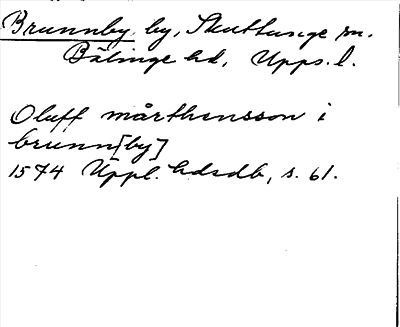 Brunnby by, Skuttunge sn.
Bälinge hd, Upps. l.
Oluff mårthensson i
brunn[by]
1574 Uppl. hdsdb, s. 61.